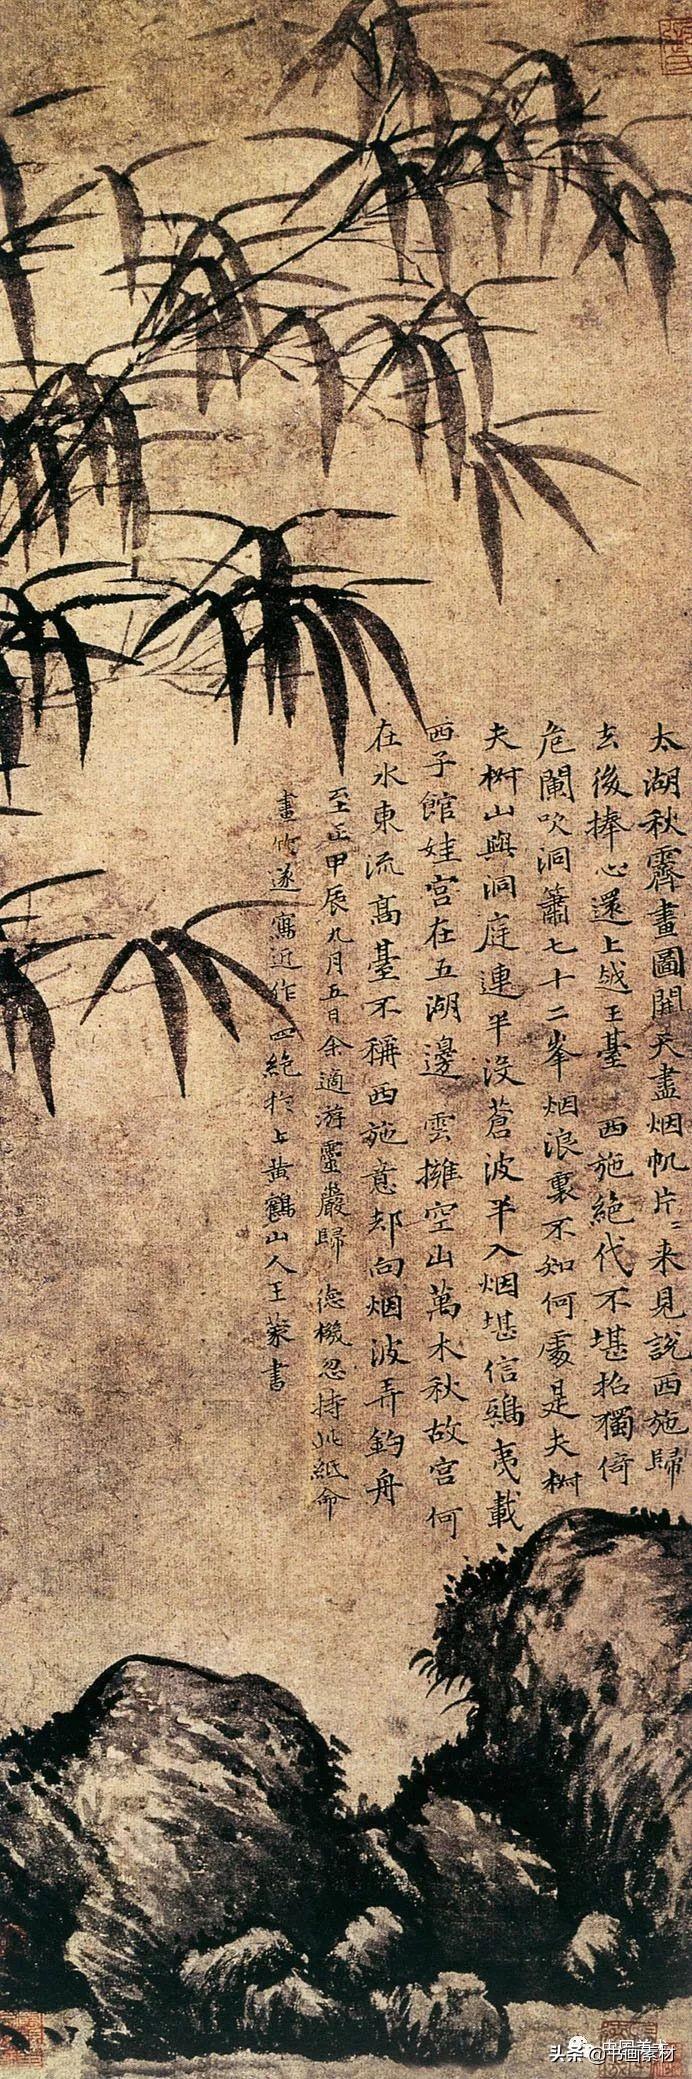 太湖秋霽畫圖開天盡烟帆片〻來見說西施歸
去後捧心還上越王臺 西施絕代不堪招獨倚
危闌吹洞簫七十二峯烟浪裏不知何處是夫椒
夫椒山與洞庭連半沒蒼波半入烟堪信鴟夷載
西子館娃宮在五湖邊 雲擁空山萬木秋故宮何
在水東流高臺不稱西施意却向烟波弄釣舟
至正甲辰九月五日余適游靈巖歸 德機忽持此紙命
畫竹遂寫近作四絕於上黃鶴山人王蒙書
头条 @书画素材